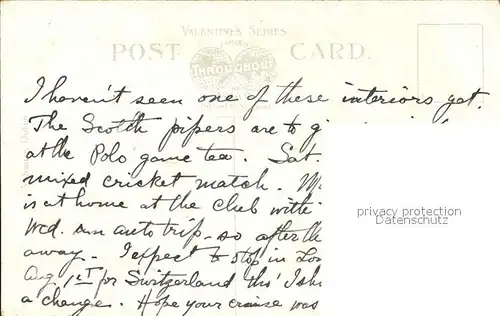 VALENTINE'S SERIES
POST CARD.
THROUGHOUT
I haven't seen one of these interiors yet.
The Scotch pipers are to g
at the Polo game tea. Sat.
mixed cricket match. M
is at home at the club
Wed. an auto trip - so after th
away. - I expect to stop in Lon
Aug. 1st for Switzerland tho' I sh
a change. Hope your cruise was
privacy protection
Datenschutz